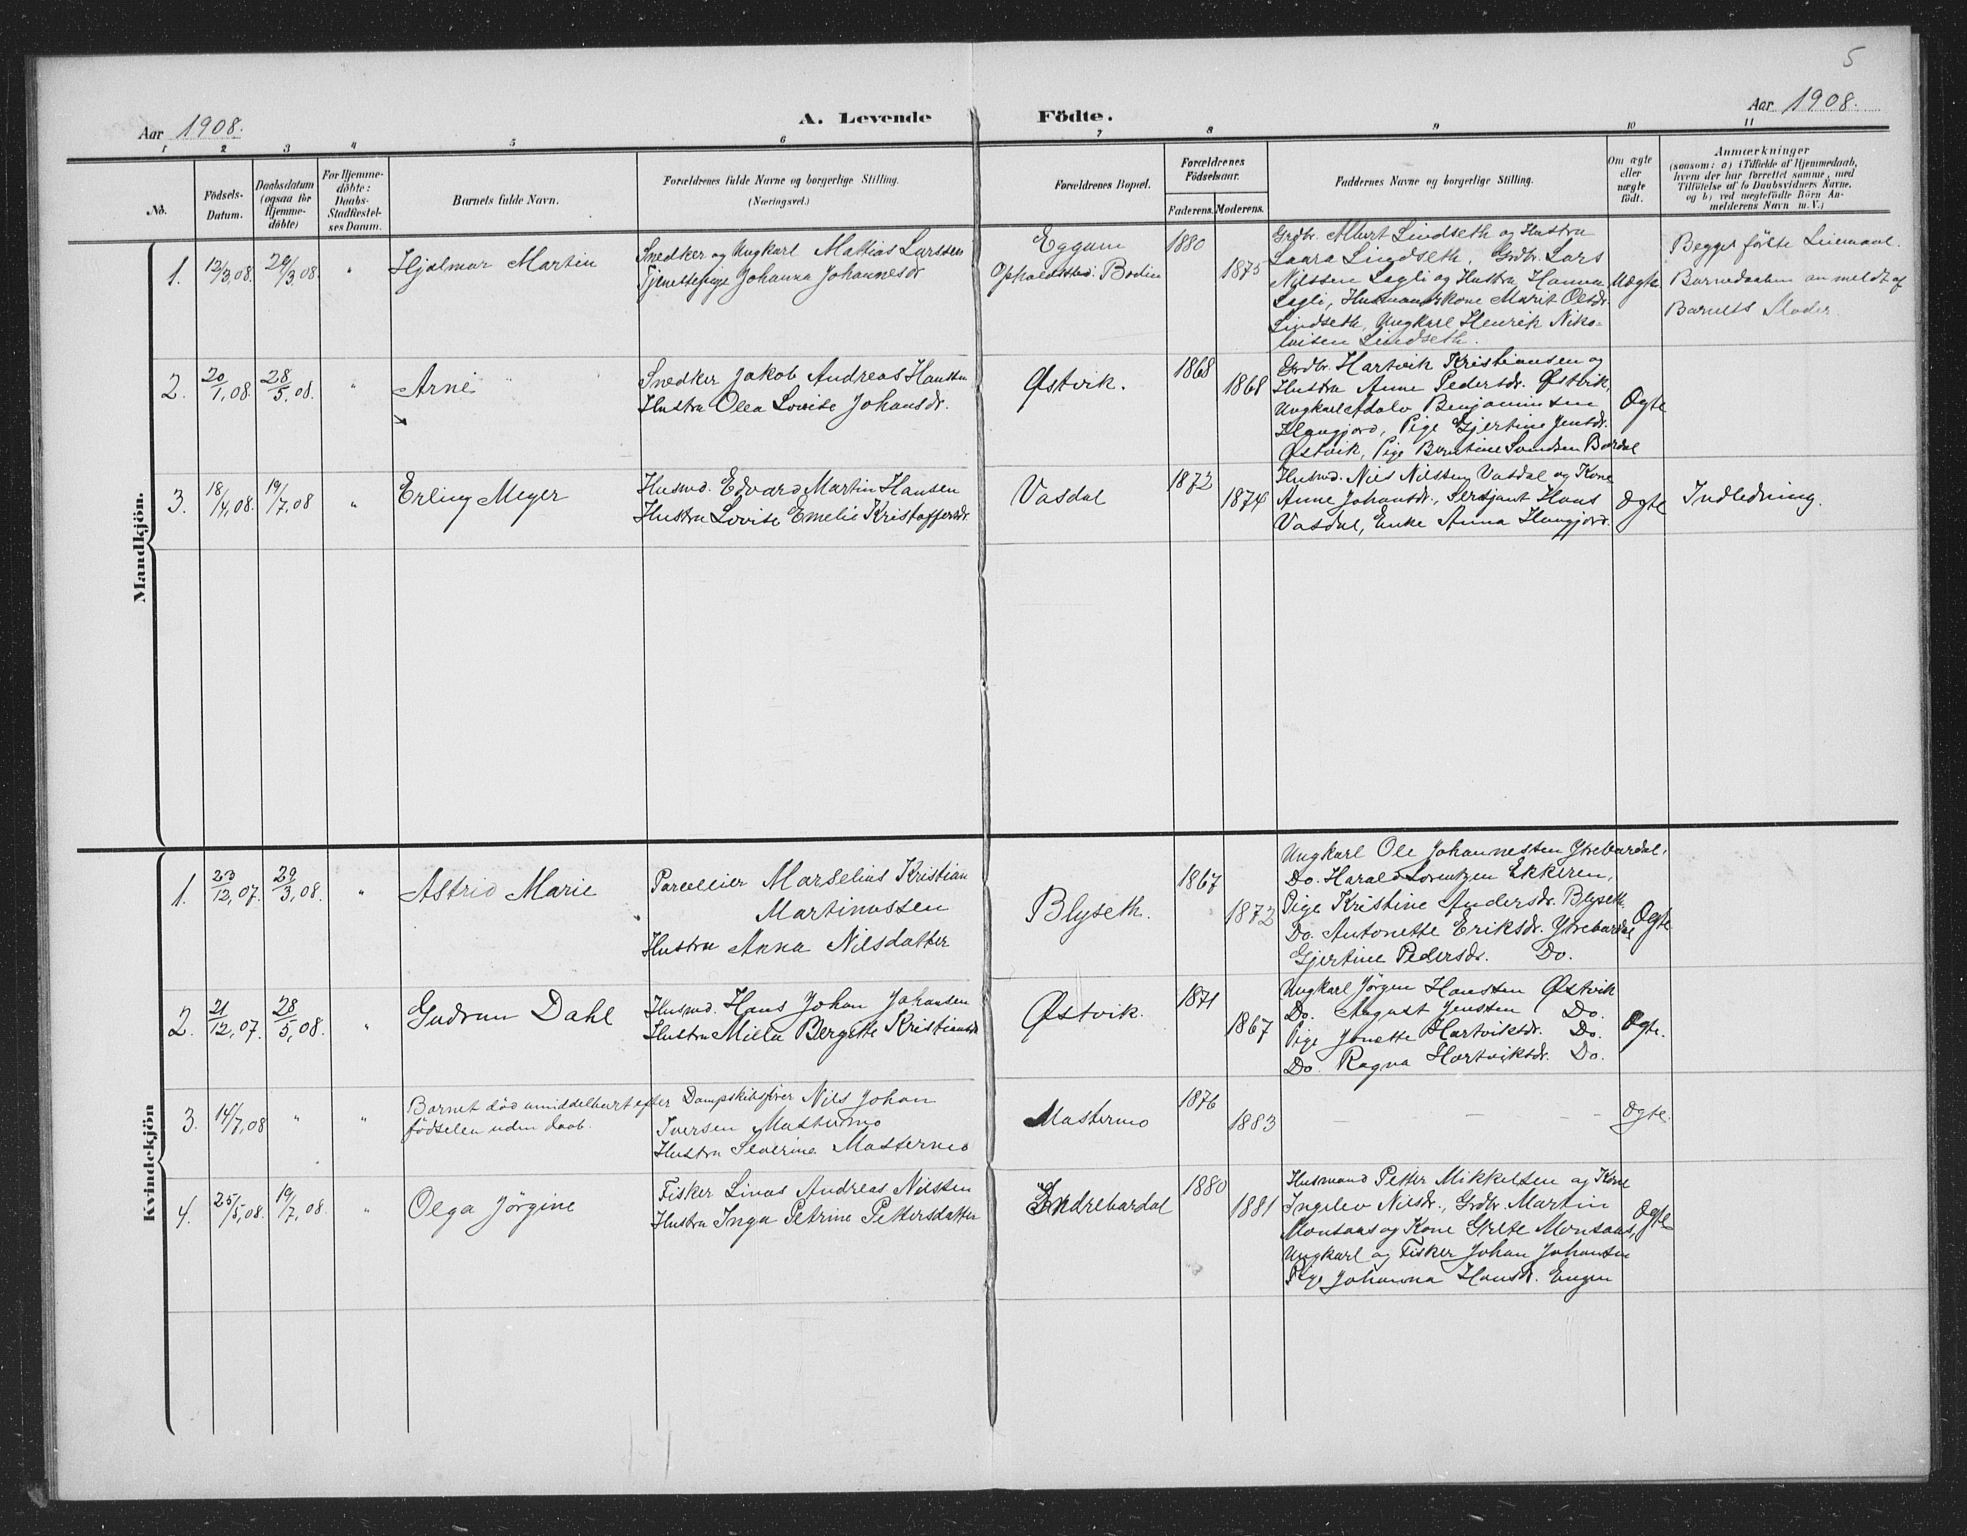 5
Aar 1908.
A. Levende Födte.
Aar 1908.
1 2 3 4 5 6 7 8 9 10 11
No.
Födsels-
Datum.
Daabsdatum
(ogsaa for
Hjemme-
döbte)
For Hjemme-
döbte:
Daabs-
Stadfæstel-
ses Datum.
Barnets fulde Navn.
Forældrenes fulde Navne og borgerlige Stilling.
(Næringsvei.)
Forældrenes Bopæl.
Forældrenes
Födselsaar.
Faderens. Moderens.
Faddernes Navne og borgerlige Stilling.
Om ægte
eller
uægte
födt.
Anmærkninger
(saasom: a) i Tilfælde af Hjemmedaab,
hvem der har forrettet samme, med
Tilföielse af to Daabsvidners Navne,
og b) ved uægtefödte Börn An-
melderens Navn m. V.)
Mandkjön.
1. 12/3,08. 29/3,08. "
Hjalmar Martin
Snedker og Ungkarl Mattias Larssen
Tjenestepige Johanna Johannesdr
Eggum
Opholdssted: Bodin
1880
1875
Grdbr. Albert Lindseth og Hustru
Laura Lindseth, Grdbr. Lars
Nilssen Lagli og Hustru Hanna
Lagli, Husmandskone Marit Olsdr.
Lindseth, Ungkarl Henrik Niko-
laisen Lindseth.
Uægte
Begges
Barnedaaben anmeldt af
Barnets Moder.
2. 20/1,08. 28/5,08. "
Arne
Snedker Jakob Andreas Hanssen
Hustru Olea Lovise Johansdr.
Østvik.
1868
1868
Grdbr. Hartvik Kristiansen og
Hustru Anne Pedersdr. Østvik,
Ungkarl Adolv Benjaminsen
Haugjord, Pige Gjertine Jensdr.
Østvik, Pige Berntine Svendsen Bardal
Ægte
3. 18/4,08. 19/7,08 "
Erling Meyer
Husmd. Edvard Martin Hansen
Hustru Lovise Emelie Kristoffersdr.
Vasdal
1872
1874
Husmd. Nils Nilssen Vasdal og Kone
Anne Johansdr., Sersjant Hans
Vasdal, Enke Anna Haugjord.
Ægte
Indledning.
Kvindekjön
1. 23/12,07. 29/3,08. "
Astrid Marie
Parcellier Marselius Kristian
Martinussen
Hustru Anna Nilsdatter
Blyseth.
1867
1872
Ungkarl Ole Johannessen Ytrebardal,
Do. Harald Lorentzen Ekkeren,
Pige Kristine Andersdr. Blyseth
Do. Antonette Eriksdr. Ytrebardal
Gjertine Pedersdr. Do.
Ægte
2. 21/12,07. 28/5,08. "
Gudrun Dahl
Husmd. Hans Johan Johansen
Hustru Milla Bergitte Kristiansdr
Østvik.
1871
1867
Ungkarl Jörgen Hanssen Østvik
Do. August Jenssen Do.
Pige Jonette Hartviksdr. Do.
Do. Ragna Hartviksdr. Do.
Ægte.
3. 14/7,08 " "
Barnet död umiddelbart efter
födselen uden daab.
Dampskibsfører Nils Johan
Iversen Mastermo
Hustru Severine Mastermo
Mastermo
1876
1883
— — —
Ægte.
4. 25/5,08. 19/7,08. "
Olga Jørgine
Fisker Linas Andreas Nilssen
Hustru Inga Petrine Pettersdatter
Indrebardal
1880
1881
Husmand Petter Mikkelsen og Kone
Ingelev Nilsdr., Grdbr. Martin
Monsaas og Kone Grete Monsaas,
Ungkarl og Fisker Johan Johansen
Pige Johanna Hansdr. Engen
Ægte